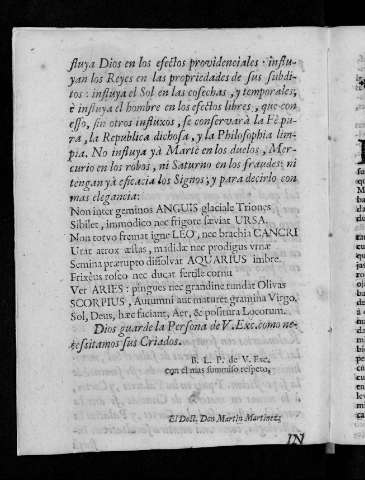 fluya Dios en los efectos providenciales: influ-
yan los Reyes en las propriedades de sus subdi-
tos: influya el Sol en las cosechas, y temporales;
è influya el hombre en los efectos libres, que con
esso, sin otros influxos, se conservarà la Fè pu-
ra, la Republica dichosa, y la Philosophia lim-
pia. No influya yà Marte en los duelos, Mer-
curio en los robos, ni Saturno en los fraudes: ni
tengan yà eficacia los Signos; y para decirlo con
mas elegancia:
Non inter geminos ANGUIS glaciale Triones
Sibilet, immodico nec frigore sæviat URSA.
Non torvo fremat igne LEO, nec brachia CANCRI
Urat atrox æstas, madidæ nec prodigus urnæ
Semina prærupto dissolvat AQUARIUS imbre.
Frixèus roseo nec ducat fertile cornu
Ver ARIES: pingues nec grandine tundat Olivas
SCORPIUS, Autumni aut maturet gramina Virgo.
Sol, Deus, hæc faciant, Aer, & positura Locorum.
Dios guarde la Persona de V. Exc. como ne-
cessitamos sus Criados.
B. L. P. de V. Exc.
con el mas summiso respeto,
El Doct. Don Martin Martinez
IN